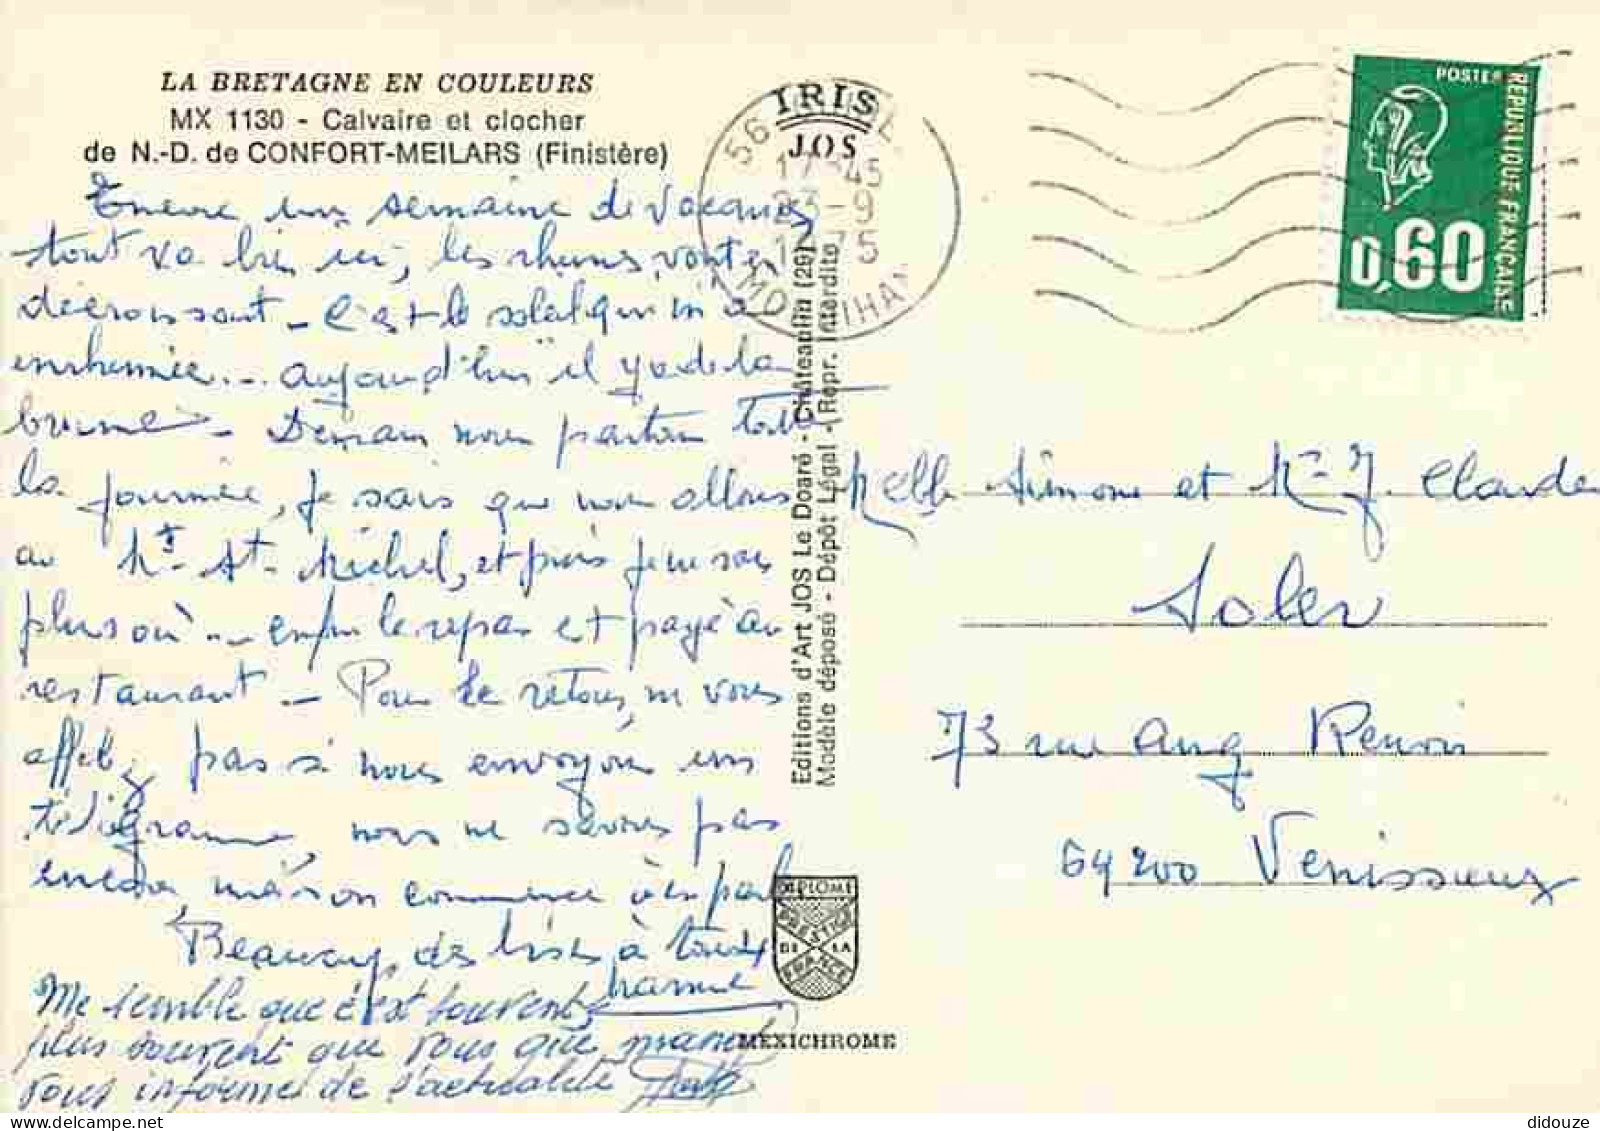 LA BRETAGNE EN COULEURS
MX 1130 - Calvaire et clocher
de N.-D. de CONFORT-MEILARS (Finistère)
Encore une semaine de vacances
tout va bien ici, les rhumes vont en
décroissant - C'est le soleil qui m'a
enrhumée - aujourd'hui il y a de la
brume - Demain nous partons toute
la journée, je sais que nous allons
au Mt St Michel, et puis je ne sais
plus où - enfin le repas est payé au
restaurant - Pour le retour, ne vous
affolez pas si nous envoyons un
télégramme, nous ne savons pas
encore, maison commence à en parler
Beaucoup de bises à tous
mamie
Me semble que c'est souvent,
plus souvent que vous que mamie
vous informe de l'actualité
IRIS
JOS
56
17-45
23-9
1975
MORBIHAN
POSTES
REPUBLIQUE FRANÇAISE
0,60
Editions d'Art JOS Le Doaré - Châteaulin (29)
Modèle déposé - Dépôt Légal - (Repr. Interdite
Melle Simone et Mr J. Claude
Soler
73 rue Aug Renoir
69200 Venissieux
DIPLOME
PRESTIGE
DE LA
FRANCE
MEXICHROME
didouze